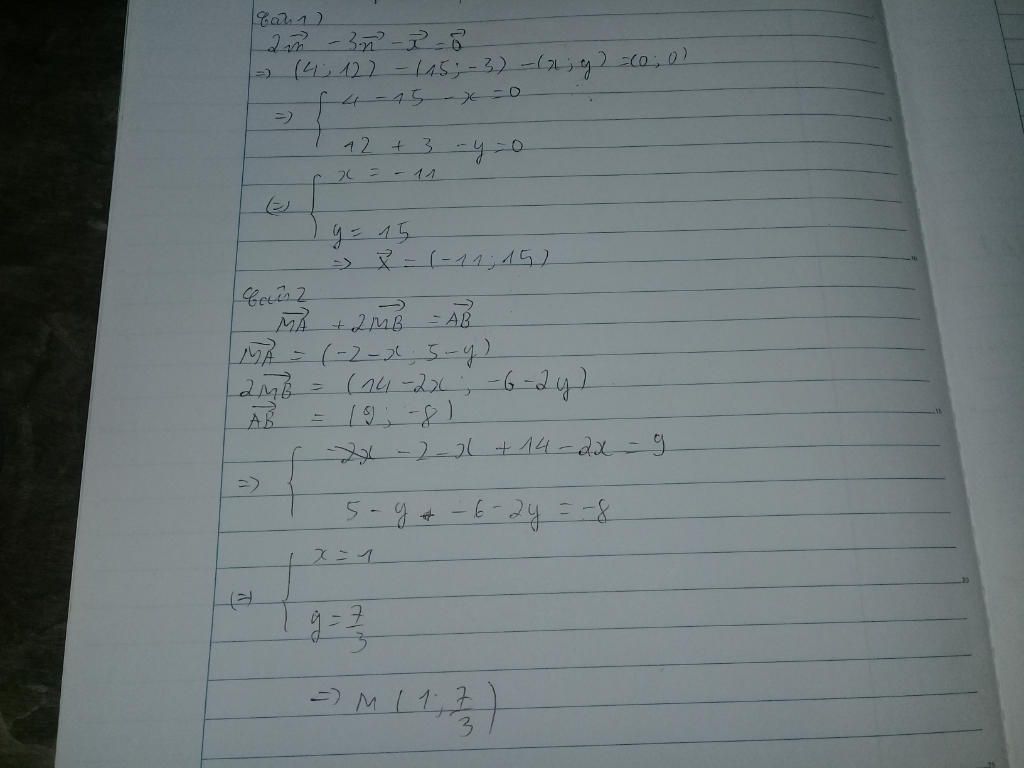 Bài 1)
2m⃗ - 3n⃗ - x⃗ = 0⃗
=> (4; 12) - (15; -3) - (x; y) = (0; 0)
=> { 4 - 15 - x = 0
12 + 3 - y = 0
(=) { x = -11
y = 15
=> x⃗ = (-11; 15)
Bài 2
MA⃗ + 2MB⃗ = AB⃗
MA⃗ = (-2-x; 5-y)
2MB⃗ = (14-2x; -6-2y)
AB⃗ = (9; -8)
=> { -2 - x + 14 - 2x = 9
5 - y - 6 - 2y = -8
(=) { x = 1
y = 7/3
=> M (1; 7/3)